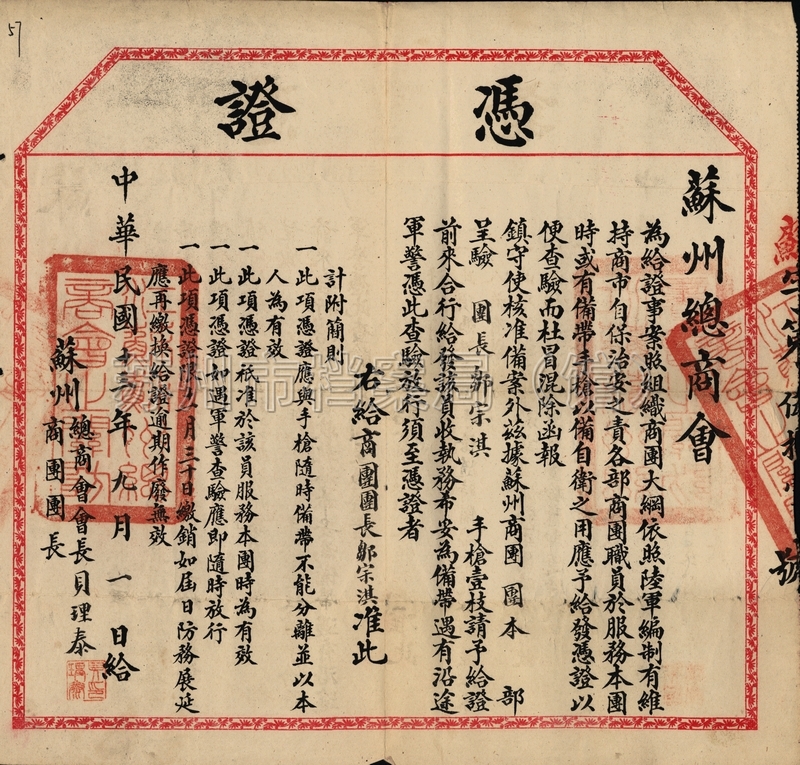 憑證
蘇州總商會
為給證事案照組織商團大綱依照陸軍編制有維
持商市自保治安之責各部商團職員於服務本團
時或有備帶手槍以備自衛之用應予給發憑證以
便查驗而杜冒混除函報
鎮守使核准備案外茲據蘇州商團 團本 部
呈驗 團長鄒宗淇 手槍壹枝請予給證
前來合行給發該員收執務希妥為備帶遇有沿途
軍警憑此查驗放行須至憑證者
右給商團團長鄒宗淇准此
計附簡則
一 此項憑證應與手槍隨時備帶不能分離並以本
人為有效
一 此項憑證祇准於該員服務本團時為有效
一 此項憑證如遇軍警查驗應即隨時放行
一 此項憑證限 月三十日繳銷如屆日防務展延
應再繳換給證逾期作廢無效
中華民國十三年九月一日給
蘇州總商會會長貝理泰
商團團長
蘇字第伍拾 號
57
蘇州市档案局（馆）